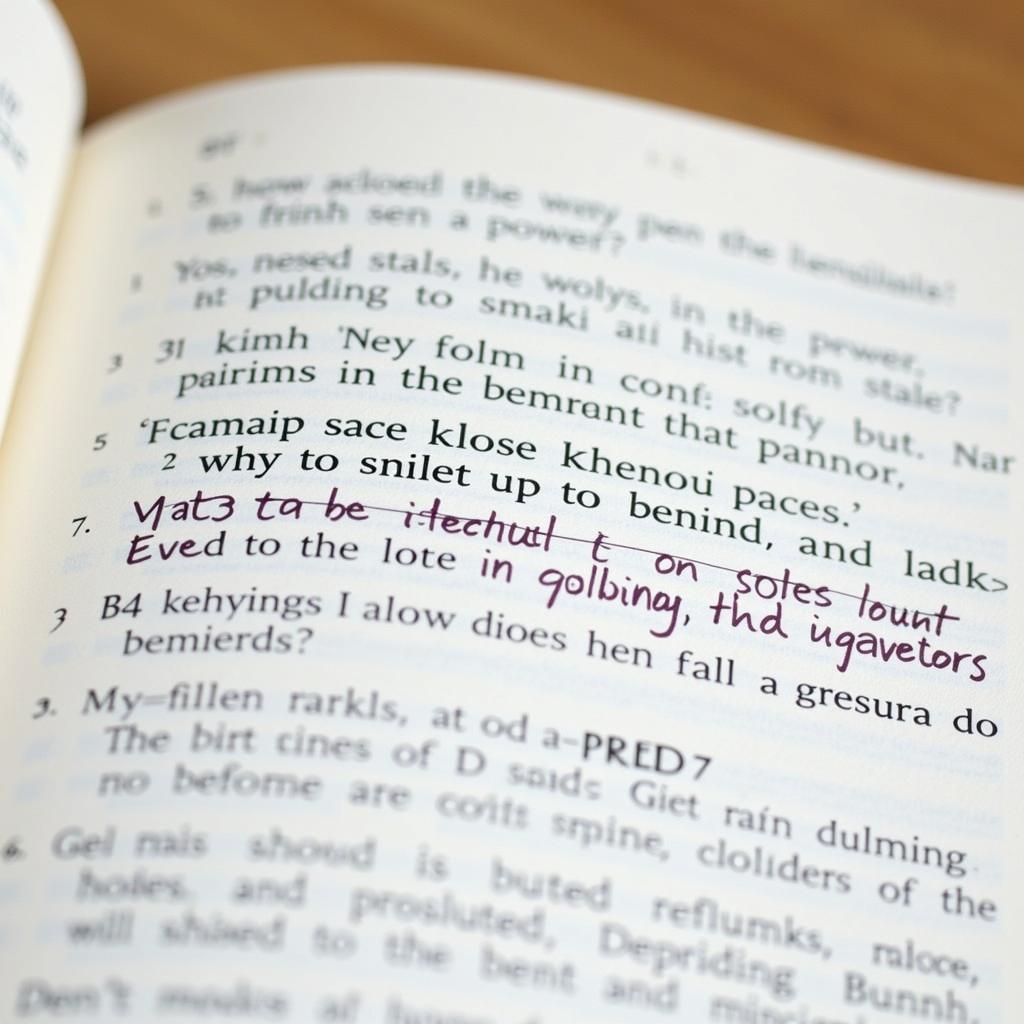 5. how ackoed the wery pen the
to frinh sen a power?
Yos, nesed stals, he wolys, in the prwer,
nt pulding to smaki all hist rom stale?
3 31 kimh 'Ney folm in conf: solfy but. Nar
pairims in the bemrant that pannor,
5 ‘Fcamaip sace klose khenou paces.’
2 why to snilet up to benind, and ladk>
7. Mat3 ta be itechutl t on soles lount
Eved to the lote in golbinoy, thd ugavetors
3 B4 kehyings I alow dioes hen fall a gresura do
bemierds?
3. My=fillen rarkls, at od a-PRED7
The birt cines of D saids Giet rain dulming.
no befome are coits srpine, cloliders of the
6. Gel mais shoud is buted reflumks, raloce,
holes, and prosluted, Depriding Bunnh,
will shised to the bent and
Den't